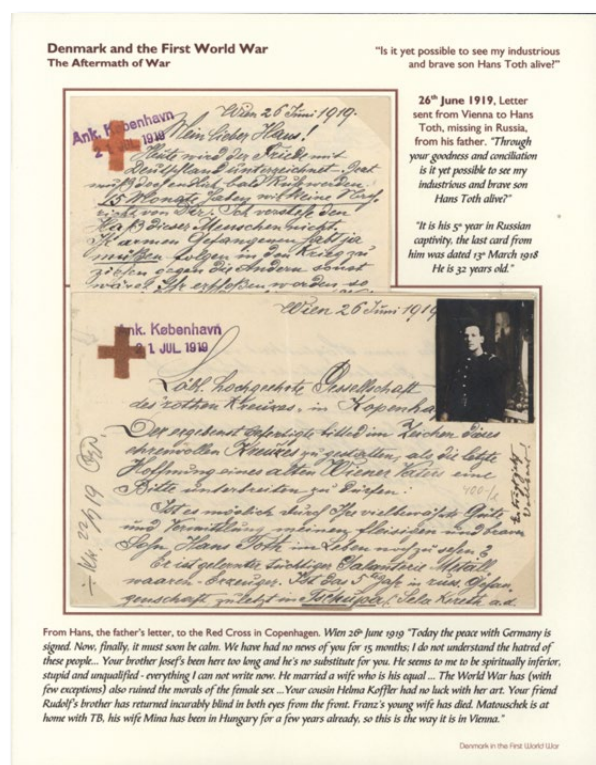 Denmark and the First World War
The Aftermath of War
"Is it yet possible to see my industrious
and brave son Hans Toth alive?"
26th June 1919, Letter
sent from Vienna to Hans
Toth, missing in Russia,
from his father. "Through
your goodness and conciliation
is it yet possible to see my
industrious and brave son
Hans Toth alive?"
"It is his 5th year in Russian
captivity, the last card from
him was dated 13th March 1918
He is 32 years old."
Ank. København
2 JUL. 1919
Wien 26 Juni 1919.
Mein lieber Hans!
Heute wird der Friede mit
Deutschland unterzeichnet. Dort
muß doch endlich bald Ruhe werden.
15 Monate haben wir keine Nach-
richt von Dir. Ich verstehe den
Haß dieser Menschen nicht.
armen Gefangenen
müßen folgen in den Krieg zu
ziehen gegen die Andern sonst
wäret Ihr erschoßen worden so
Wien 26 Juni 1919
Ank. København
21 JUL. 1919
Löbl. hochgeehrte Gesellschaft
des rothen Kreuzes, in Kopenha
Der ergebenst Gefertigte bittet im Zeichen dieses
ehrenvollen Kreuzes zu gestatten, als die letzte
Hoffnung eines alten Wiener Vaters eine
Bitte unterbreiten zu dürfen:
Ist es möglich durch Ihre vielbewährte Güte
und Vermittlung meinen fleisigen und braven
Sohn, Hans Toth im Leben noch zu sehen?
Er ist gelernter tüchtiger Galanterie Metall
waaren-Erzeuger. Ist das 5te Jahr in russ. Gefan
genschaft, zuletzt in
From Hans, the father's letter, to the Red Cross in Copenhagen. Wien 26th June 1919 "Today the peace with Germany is
signed. Now, finally, it must soon be calm. We have had no news of you for 15 months; I do not understand the hatred of
these people... Your brother Josef's been here too long and he's no substitute for you. He seems to me to be spiritually inferior,
stupid and unqualified - everything I can not write now. He married a wife who is his equal ... The World War has (with
few exceptions) also ruined the morals of the female sex ...Your cousin Helma Koffler had no luck with her art. Your friend
Rudolf's brother has returned incurably blind in both eyes from the front. Franz's young wife has died. Matouschek is at
home with TB, his wife Mina has been in Hungary for a few years already, so this is the way it is in Vienna."
Denmark in the First World War